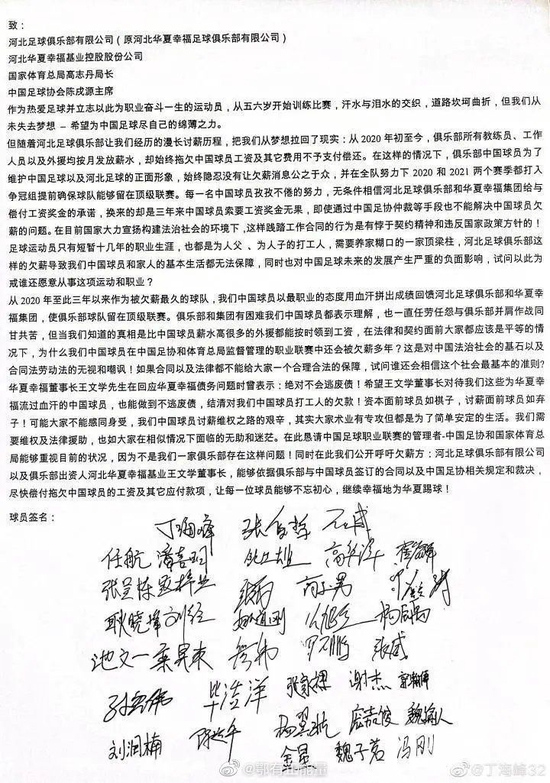 致：
河北足球俱乐部有限公司（原河北华夏幸福足球俱乐部有限公司）
河北华夏幸福基业控股股份公司
国家体育总局高志丹局长
中国足球协会陈戌源主席
作为热爱足球并立志以此为职业奋斗一生的运动员，从五六岁开始训练比赛，汗水与泪水的交织，道路坎坷曲折，但我们从
未失去梦想 – 希望为中国足球尽自己的绵薄之力。
但随着河北足球俱乐部让我们经历的漫长讨薪历程，把我们从梦想拉回了现实：从 2020 年初至今，俱乐部所有教练员、工作
人员以及外援均按月发放薪水，却始终拖欠中国球员工资及其它费用不予支付偿还。在这样的情况下，俱乐部中国球员为了
维护中国足球以及河北足球的正面形象，始终隐忍没有让欠薪消息公之于众，并在全队努力下 2020 和 2021 两个赛季都打入
争冠组提前确保球队能够留在顶级联赛。每一名中国球员孜孜不倦的努力，无条件相信河北足球俱乐部和华夏幸福集团给与
偿付工资奖金的承诺，换来的却是三年来中国球员索要工资奖金无果，即使通过中国足协仲裁等手段也不能解决中国球员欠
薪的问题。在目前国家大力宣扬构建法治社会的环境下，这样践踏工作合同的行为是有悖于契约精神和违反国家政策方针的！
足球运动员只有短暂十几年的职业生涯，也都是为人父、为人子的打工人，需要养家糊口的一家顶梁柱，河北足球俱乐部这
样的欠薪导致我们中国球员和家人的基本生活都无法保障，同时也对中国足球未来的发展产生严重的负面影响，试问以此为
戒谁还愿意从事这项运动和职业？
从 2020 年至此三年以来作为被欠薪最久的球队，我们中国球员以最职业的态度用血汗拼出成绩回馈河北足球俱乐部和华夏幸
福集团，使俱乐部球队留在顶级联赛。俱乐部和集团有困难我们中国球员都表示理解，也一直任劳任怨与俱乐部并肩作战同
甘共苦，但当我们知道的真相是比中国球员薪水高很多的外援都能按时领到工资，在法律和契约面前大家都应该是平等的情
况下，为什么我们中国球员在中国足协和体育总局监督管理的职业联赛中还会被欠薪多年？这是对中国法治社会的基石以及
合同法劳动法的无视和嘲讽！如果合同以及法律都不能给大家一个合理合法的保障，试问谁还会相信这个社会最基本的准则?
华夏幸福董事长王文学先生在回应华夏幸福债务问题时曾表示：绝对不会逃废债！希望王文学董事长对待我们这些为华夏幸
福流过血汗的中国球员，也能做到不逃废债，结清对我们中国球员打工人的欠款！资本面前球员如棋子，讨薪面前球员如弃
子！可能大家不能感同身受，我们中国球员讨薪维权之路的艰辛，其实大家术业有专攻但都是为了简单安定的生活。我们需
要维权及法律援助，也如大家在相似情况下面临的无助和迷茫。在此恳请中国足球职业联赛的管理者-中国足协和国家体育总
局能够重视目前的状况，因为不是我们一家俱乐部存在这样问题！同时在此我们公开呼吁欠薪方：河北足球俱乐部有限公司
以及俱乐部出资人河北华夏幸福基业王文学董事长，能够依据俱乐部与中国球员签订的合同以及中国足协相关规定和裁决，
尽快偿付拖欠中国球员的工资及其它应付款项，让每一位球员能够不忘初心，继续幸福地为华夏踢球！
球员签名：
丁海峰
任航 潘喜明 高华泽
张呈栋
耿晓峰 刘经
池文一 罗 鹏 张威
毕津洋 张家棋 谢杰
刘润楠 魏子茗 冯刚
@丁海峰32